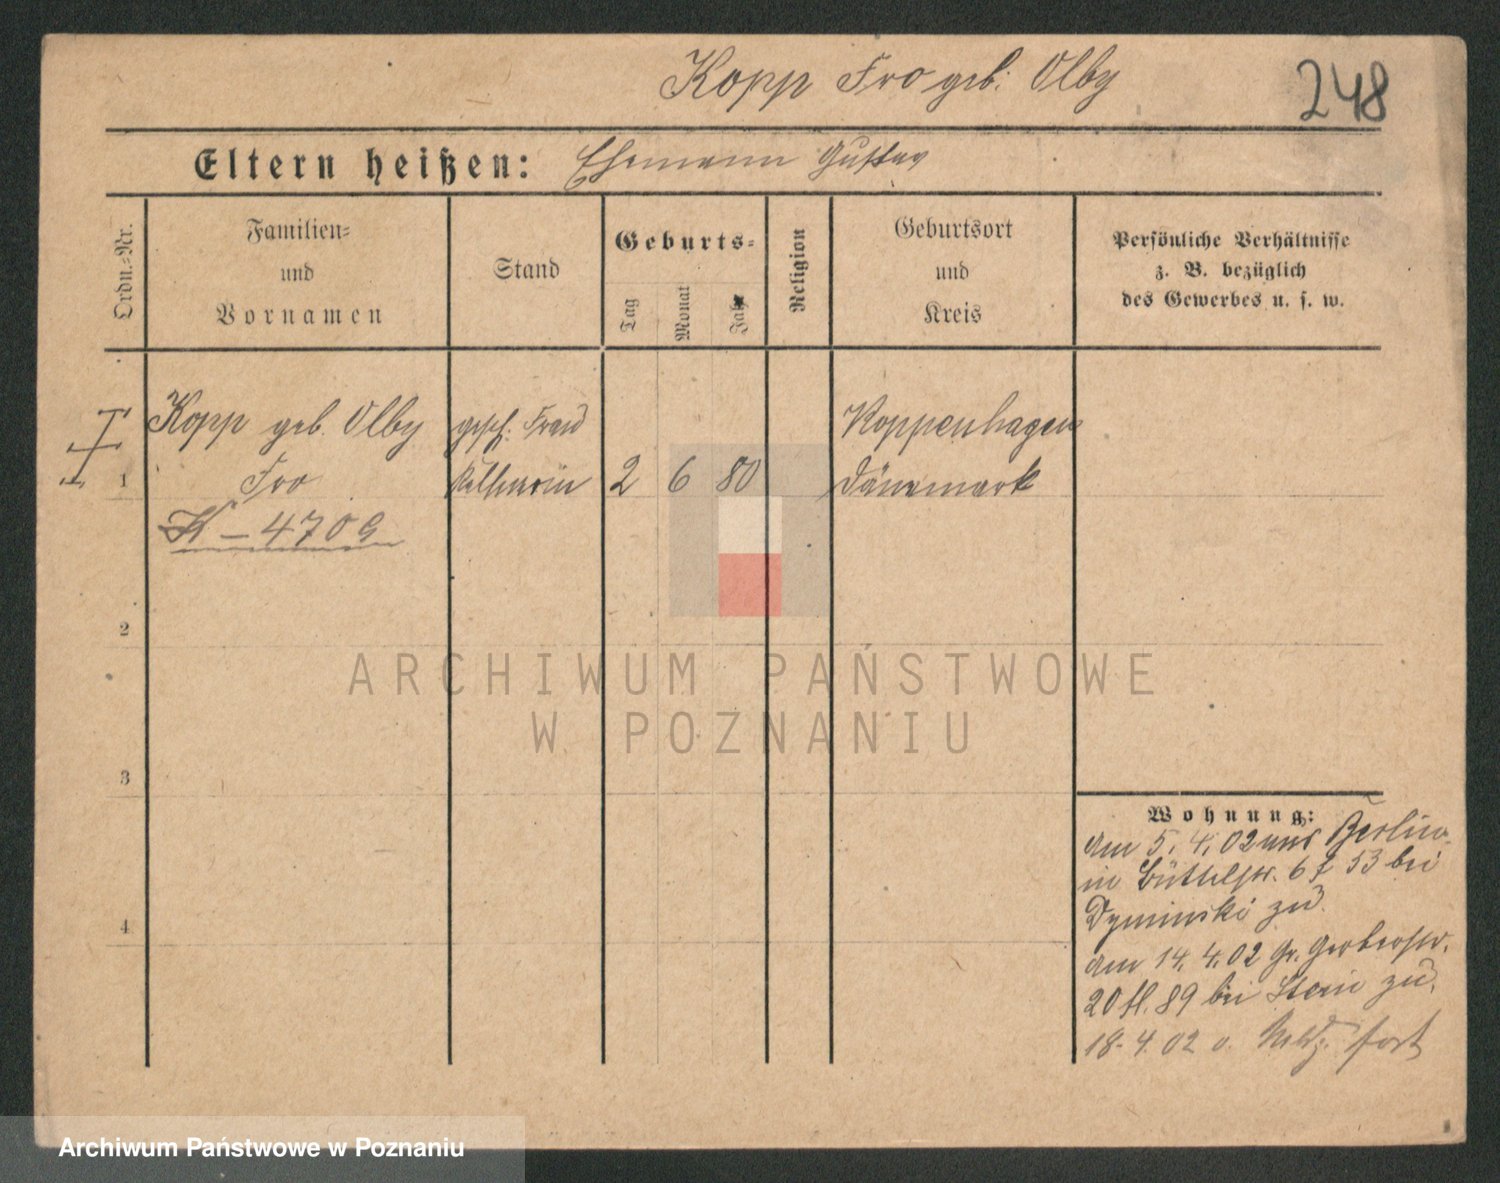 Kopp Fro geb. Olby
248
Eltern heißen: Ehemann Gustav
Ordn.=Nr.
Familien=
und
Vornamen
Stand
Geburts=
Tag
Monat
Jahr
Religion
Geburtsort
und
Kreis
Persönliche Verhältnisse
z. B. bezüglich
des Gewerbes u. s. w.
Kopp geb. Olby gesch. Frau Koppenhagen
1 Fro Kellnerin 2 6 80 Dänemark
K – 4709
2
ARCHIWUM PAŃSTWOWE
W POZNANIU
3
Wohnung:
am 5. 4. 02 aus Berlin
in Büttelstr. 6 53 bei
Dyminski zu
am 14. 4. 02 Gr. Gerberstr.
20 fl. 89 bei Stein zu.
4
18. 4. 02 o. Meldg. fort
Archiwum Państwowe w Poznaniu